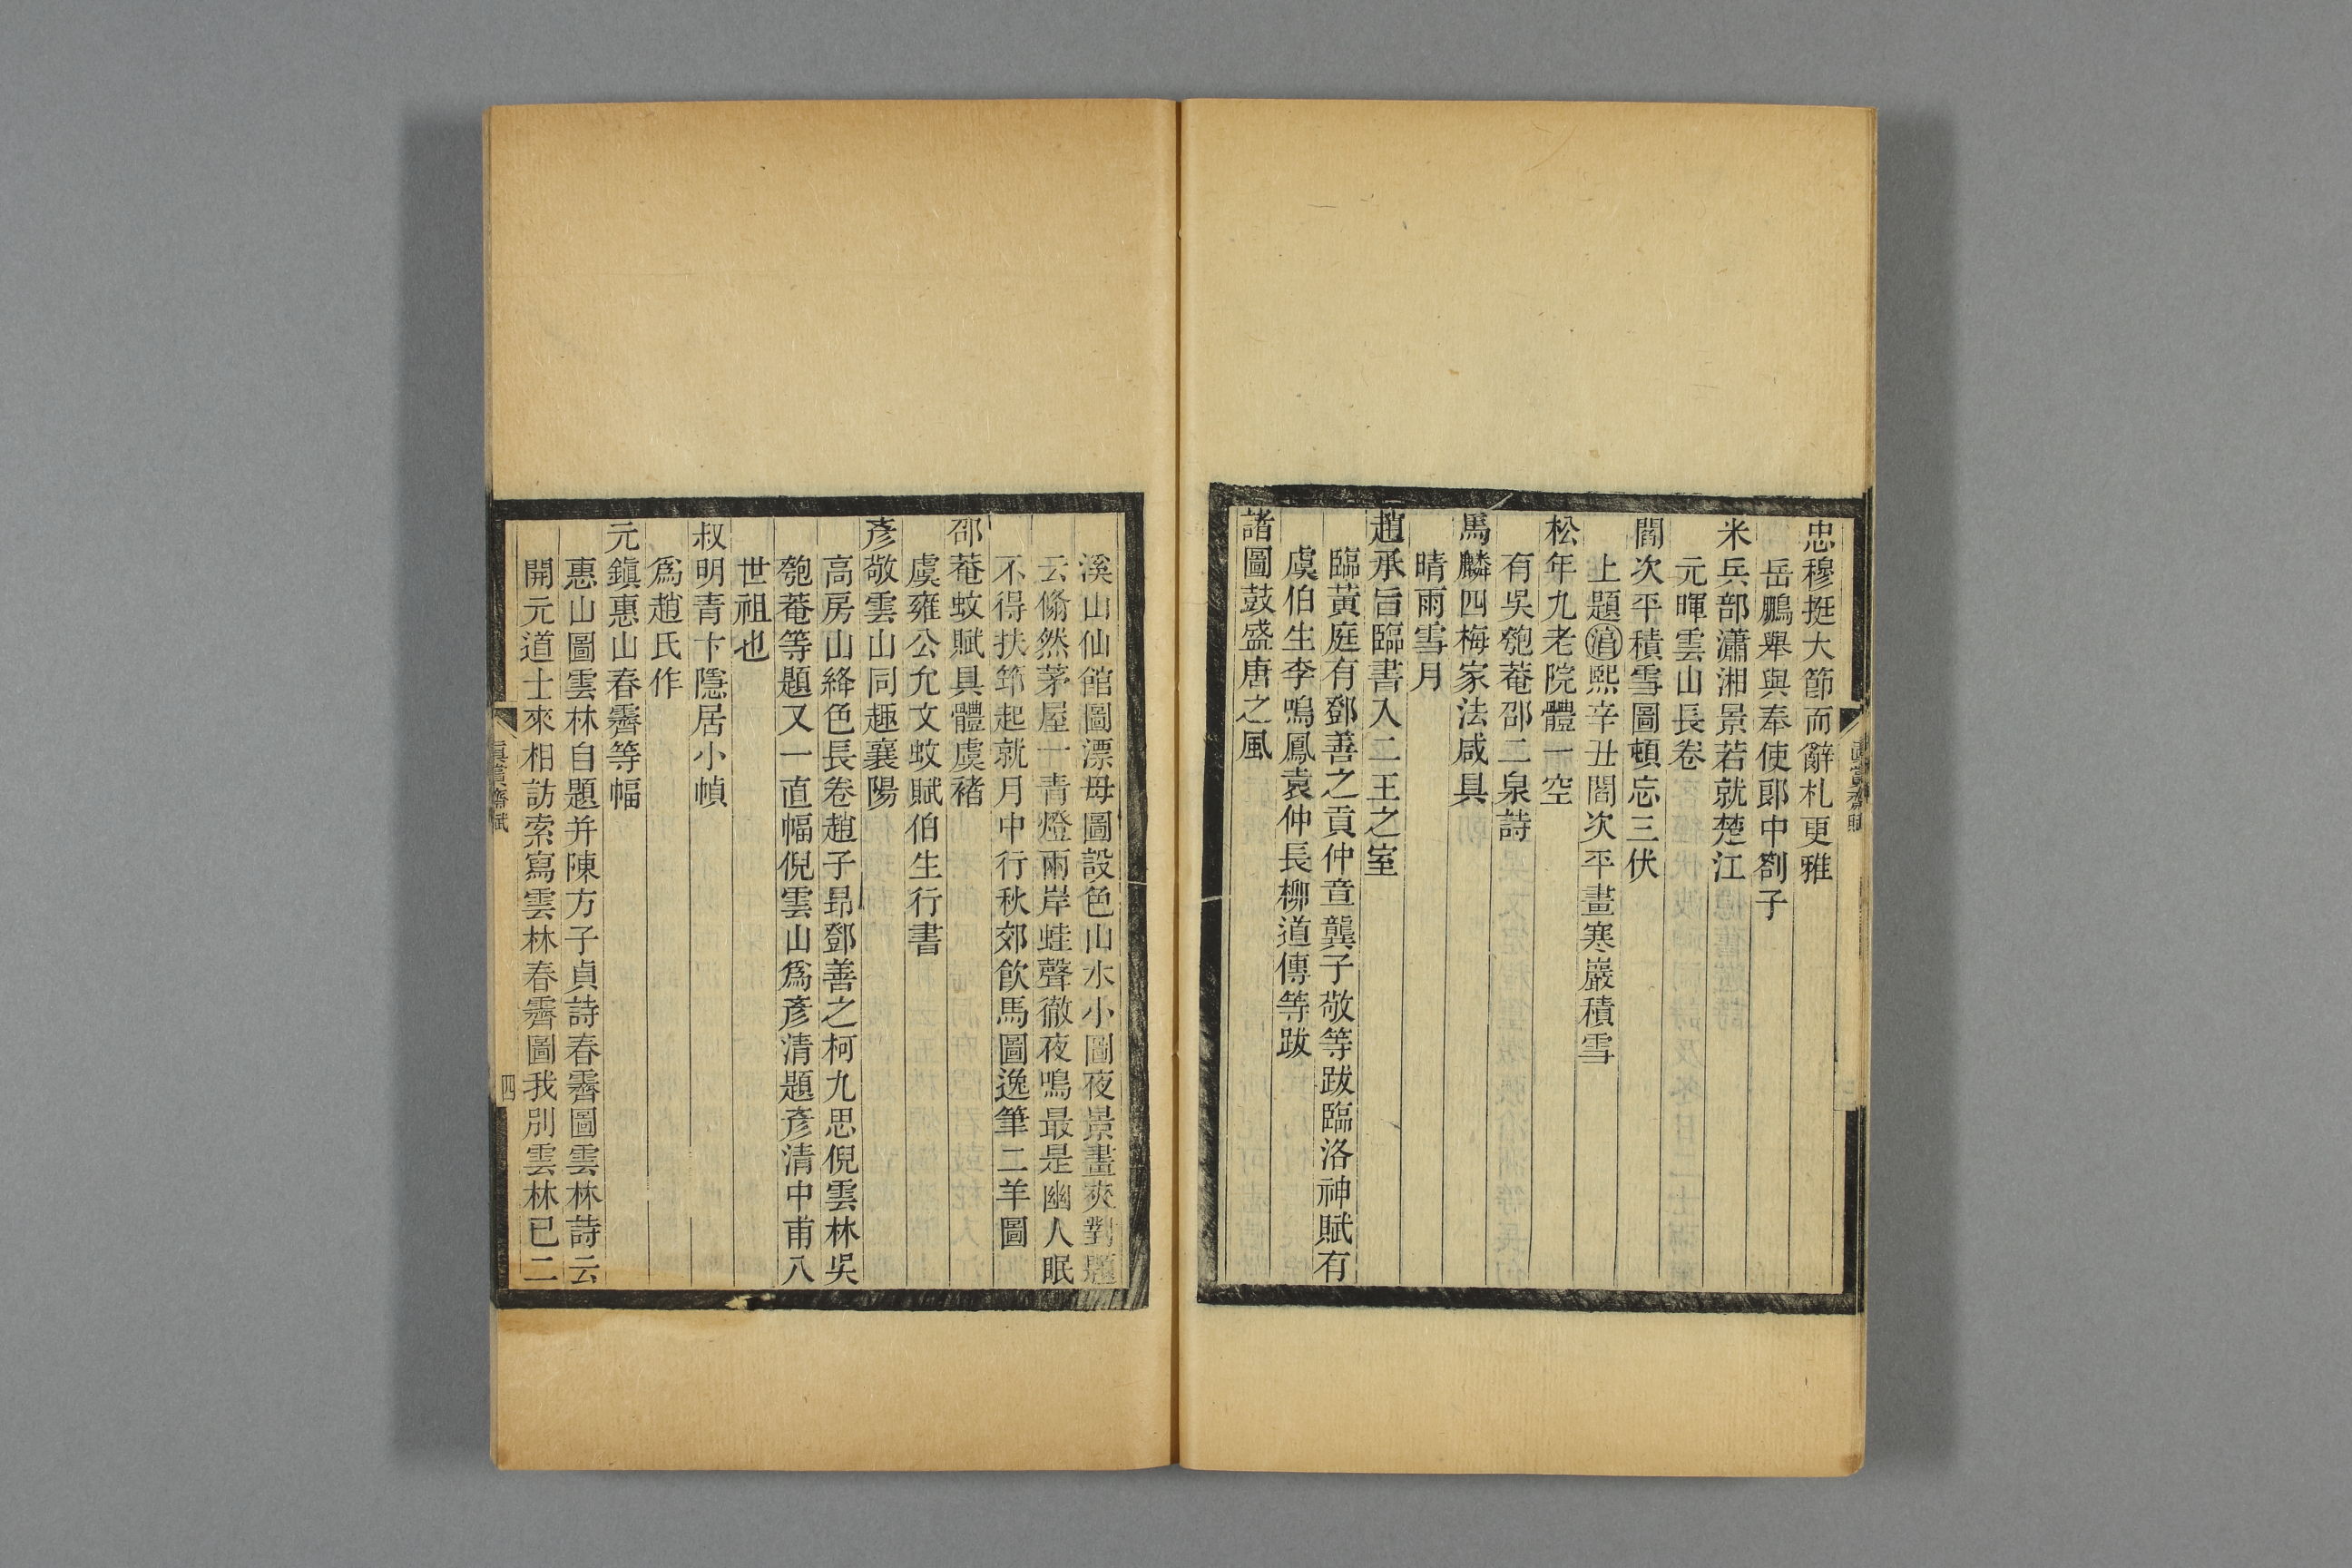 忠穆挺大節而辭札更雅
岳鵬舉與奉使郎中劄子
米兵部瀟湘景若就楚江
元暉雲山長卷
閻次平積雪圖頓忘三伏
上題淳熙辛丑閻次平畫寒巖積雪
松年九老院體一空
有吳匏菴邵二泉詩
馬麟四梅家法咸具
晴雨雪月
趙承旨臨書入二王之室
臨黃庭有鄧善之貢仲章龔子敬等跋臨洛神賦有
虞伯生李鳴鳳袁仲長柳道傳等跋
諸圖鼓盛唐之風
真賞齋賦
溪山仙館圖漂母圖設色山水小圖夜景畫夾對題
云翛然茅屋一青燈兩岸蛙聲徹夜鳴最是幽人眠
不得扶筇起就月中行秋郊飲馬圖逸筆二羊圖
邵菴蚊賦具體虞褚
虞雍公允文蚊賦伯生行書
彥敬雲山同趣襄陽
高房山絳色長卷趙子昻鄧善之柯九思倪雲林吳
匏菴等題又一直幅倪雲山爲彥清題彥清中甫八
世祖也
叔明青卞隱居小幀
爲趙氏作
元鎮惠山春霽等幅
惠山圖雲林自題并陳方子貞詩春霽圖雲林詩云
開元道士來相訪索寫雲林春霽圖我別雲林已二
真賞齋賦
四